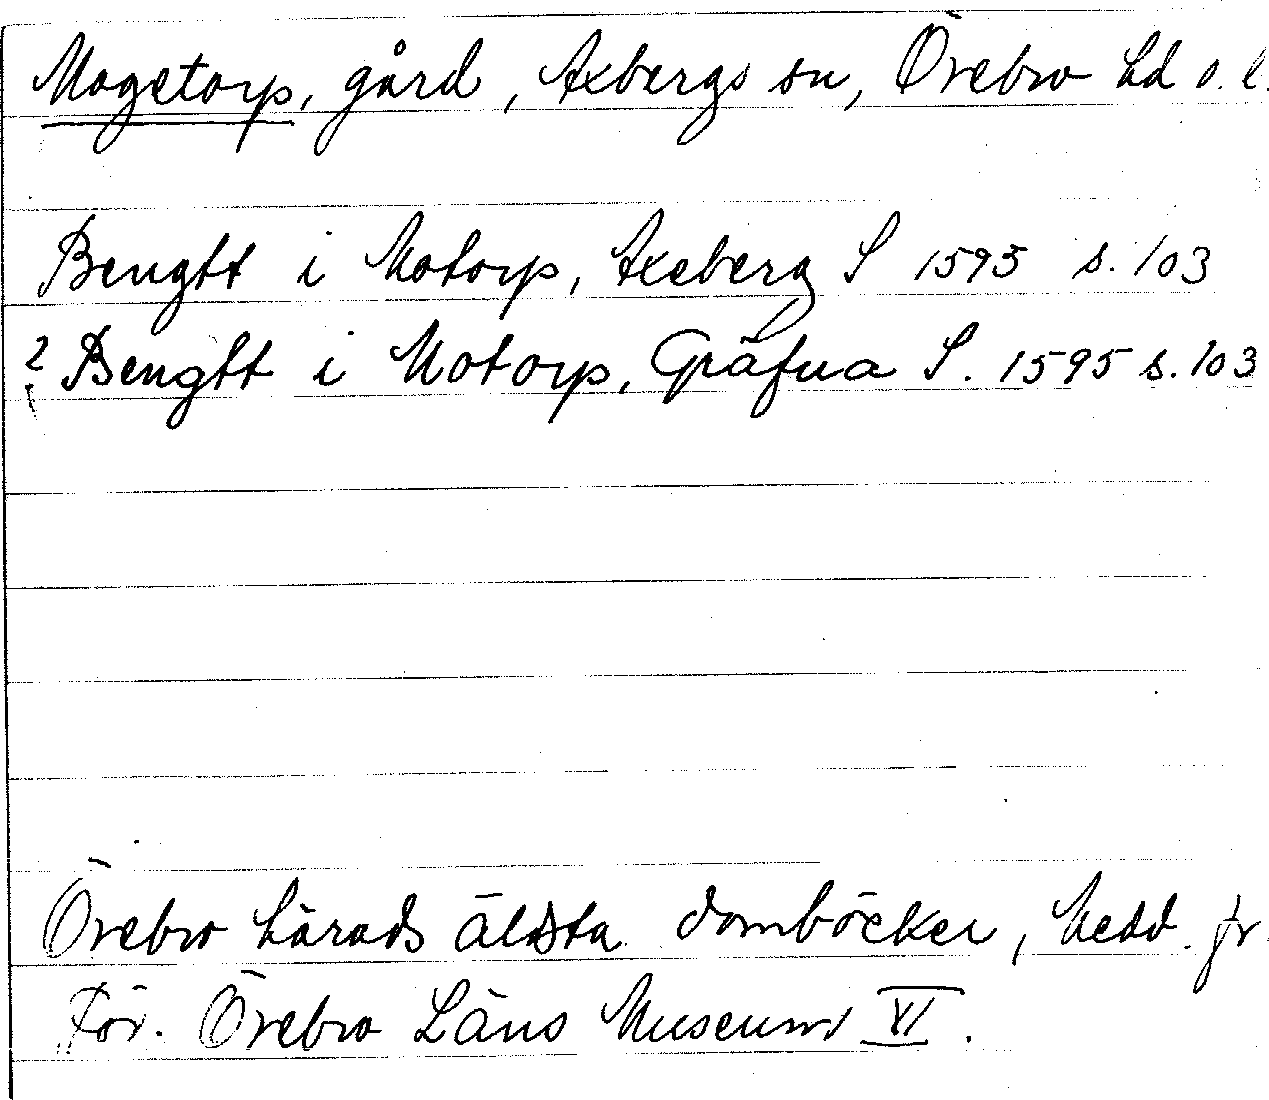 Mogetorp, gård, Axbergs sn, Örebro hd o. l.
Bengtt i Motorp, Axeberg S 1595 s. 103
? Bengtt i Motorp, Gräfua S. 1595 s. 103
Örebro härads äldsta domböcker, Medd. fr
För. Örebro Läns Museum VI.